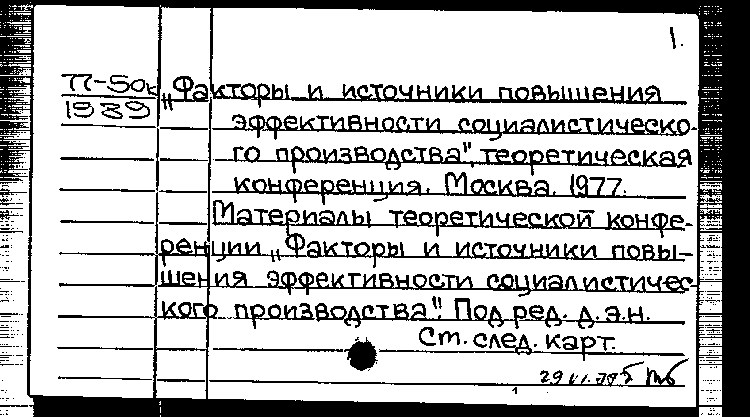 1.
П-50к
1989
„Факторы и источники повышения
эффективности социалистическо-
го производства", теоретическая
конференция. Москва. 1977.
Материалы теоретической конфе-
ренции „Факторы и источники повы-
шения эффективности социалистичес-
кого производства". Под ред. д.э.н.
Ст. след. карт.